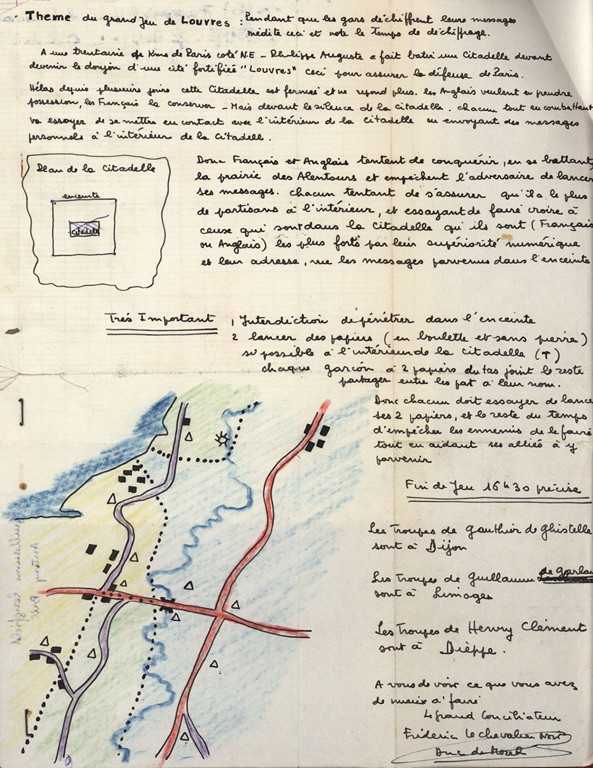 Thème du grand jeu de Louvres : Pendant que les gars déchiffrent leurs messages
médite ceci et note le temps de déchiffrage.
A une trentaine de Kms de Paris coté N.E - Philippe Auguste a fait batir une Citadelle devant
devenir le donjon d'une cité fortifiée "Louvres" ceci pour assurer la défense de Paris.
Hélas depuis plusieurs jours cette Citadelle est fermée et ne répond plus. les Anglais veulent en prendre
possession, les Français la conserver - Mais devant le silence de la citadelle. chacun tout en combattant
va essayer de se mettre en contact avec l'intérieur de la Citadelle en envoyant des messages
personnels à l'intérieur de la Citadelle.
Plan de la Citadelle
enceinte
citadelle
Donc Français et Anglais tentent de conquérir, en se battant,
la prairie des Alentours et empêchent l'adversaire de lancer
ses messages. chacun tentant de s'assurer qu'il a le plus
de partisans à l'intérieur, et essayant de faire croire à
ceux qui sont dans la Citadelle qu'ils sont (Français
ou Anglais) les plus forts par leur supériorité numérique
et leur adresse, vue les messages parvenus dans l'enceinte
Très Important
1 Interdiction de pénétrer dans l'enceinte
2 lancer des papiers (en boulette et sans pierre)
si possible à l'intérieur de la citadelle (↑)
chaque garçon à 2 papiers du tas joint le reste
partager entre les pat à leur nom.
Donc chacun doit essayer de lancer
ses 2 papiers, et le reste du temps
d'empêcher les ennemis de le faire
tout en aidant ses alliés à y
parvenir
Fin de Jeu 16h30 précise
Les Troupes de Gauthier de Ghistelle
sont à Dijon
Les Troupes de Guillaume de Garlan
sont à Limoges
Les Troupes de Henry Clément
sont à Dieppe.
A vous de voir ce que vous avez
de mieux à faire
Le grand Conciliateur
Fréderic le Chevalier Noir
Duc de